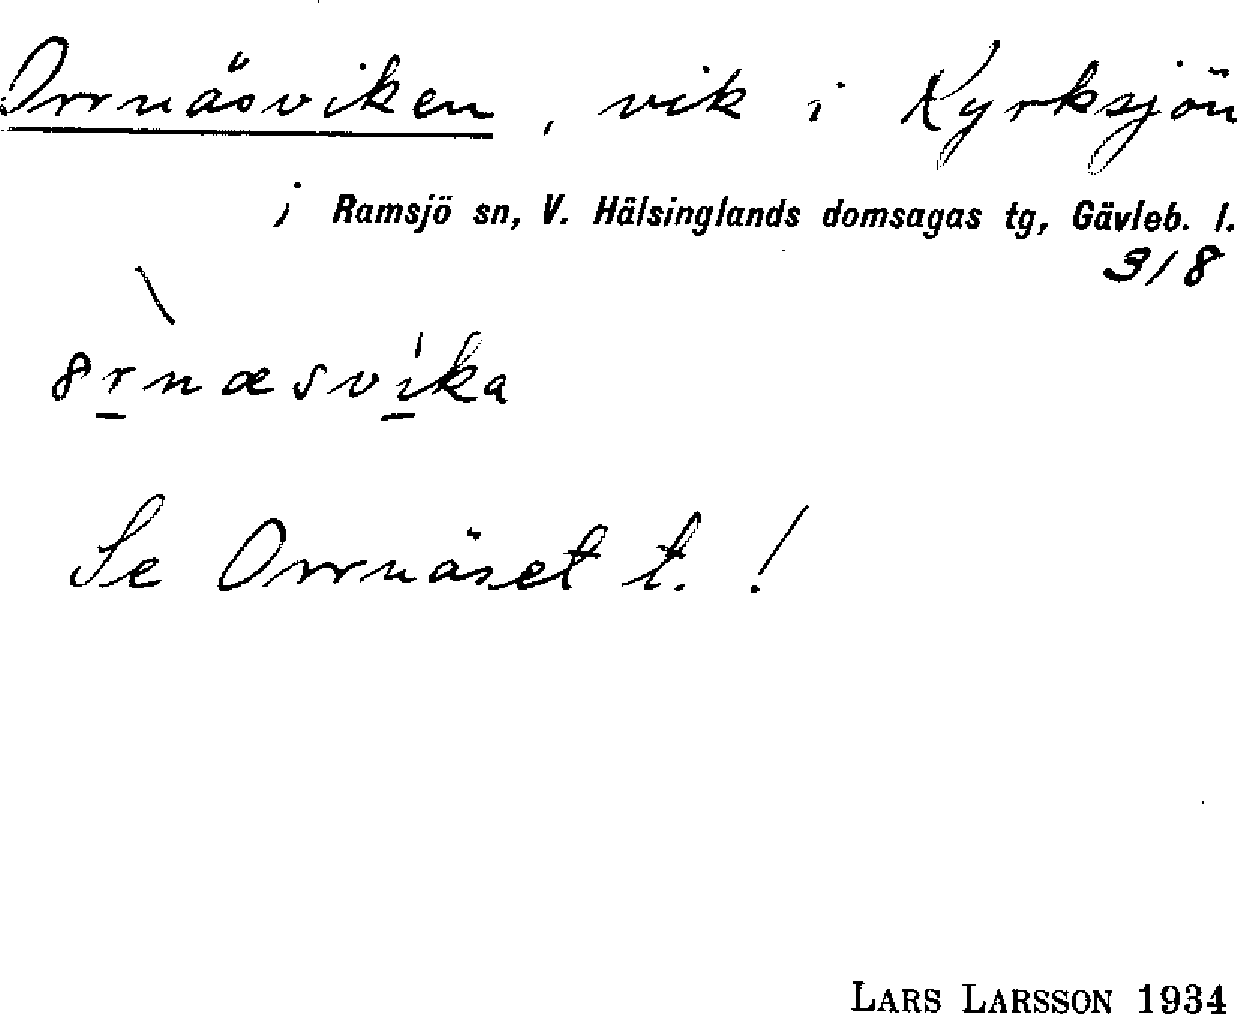 Orrnäsviken, vik i Kyrksjön
i Ramsjö sn, V. Hälsinglands domsagas tg, Gävleb. l.
318
8rnæsvika
Se Orrnäset t. !
LARS LARSSON 1934